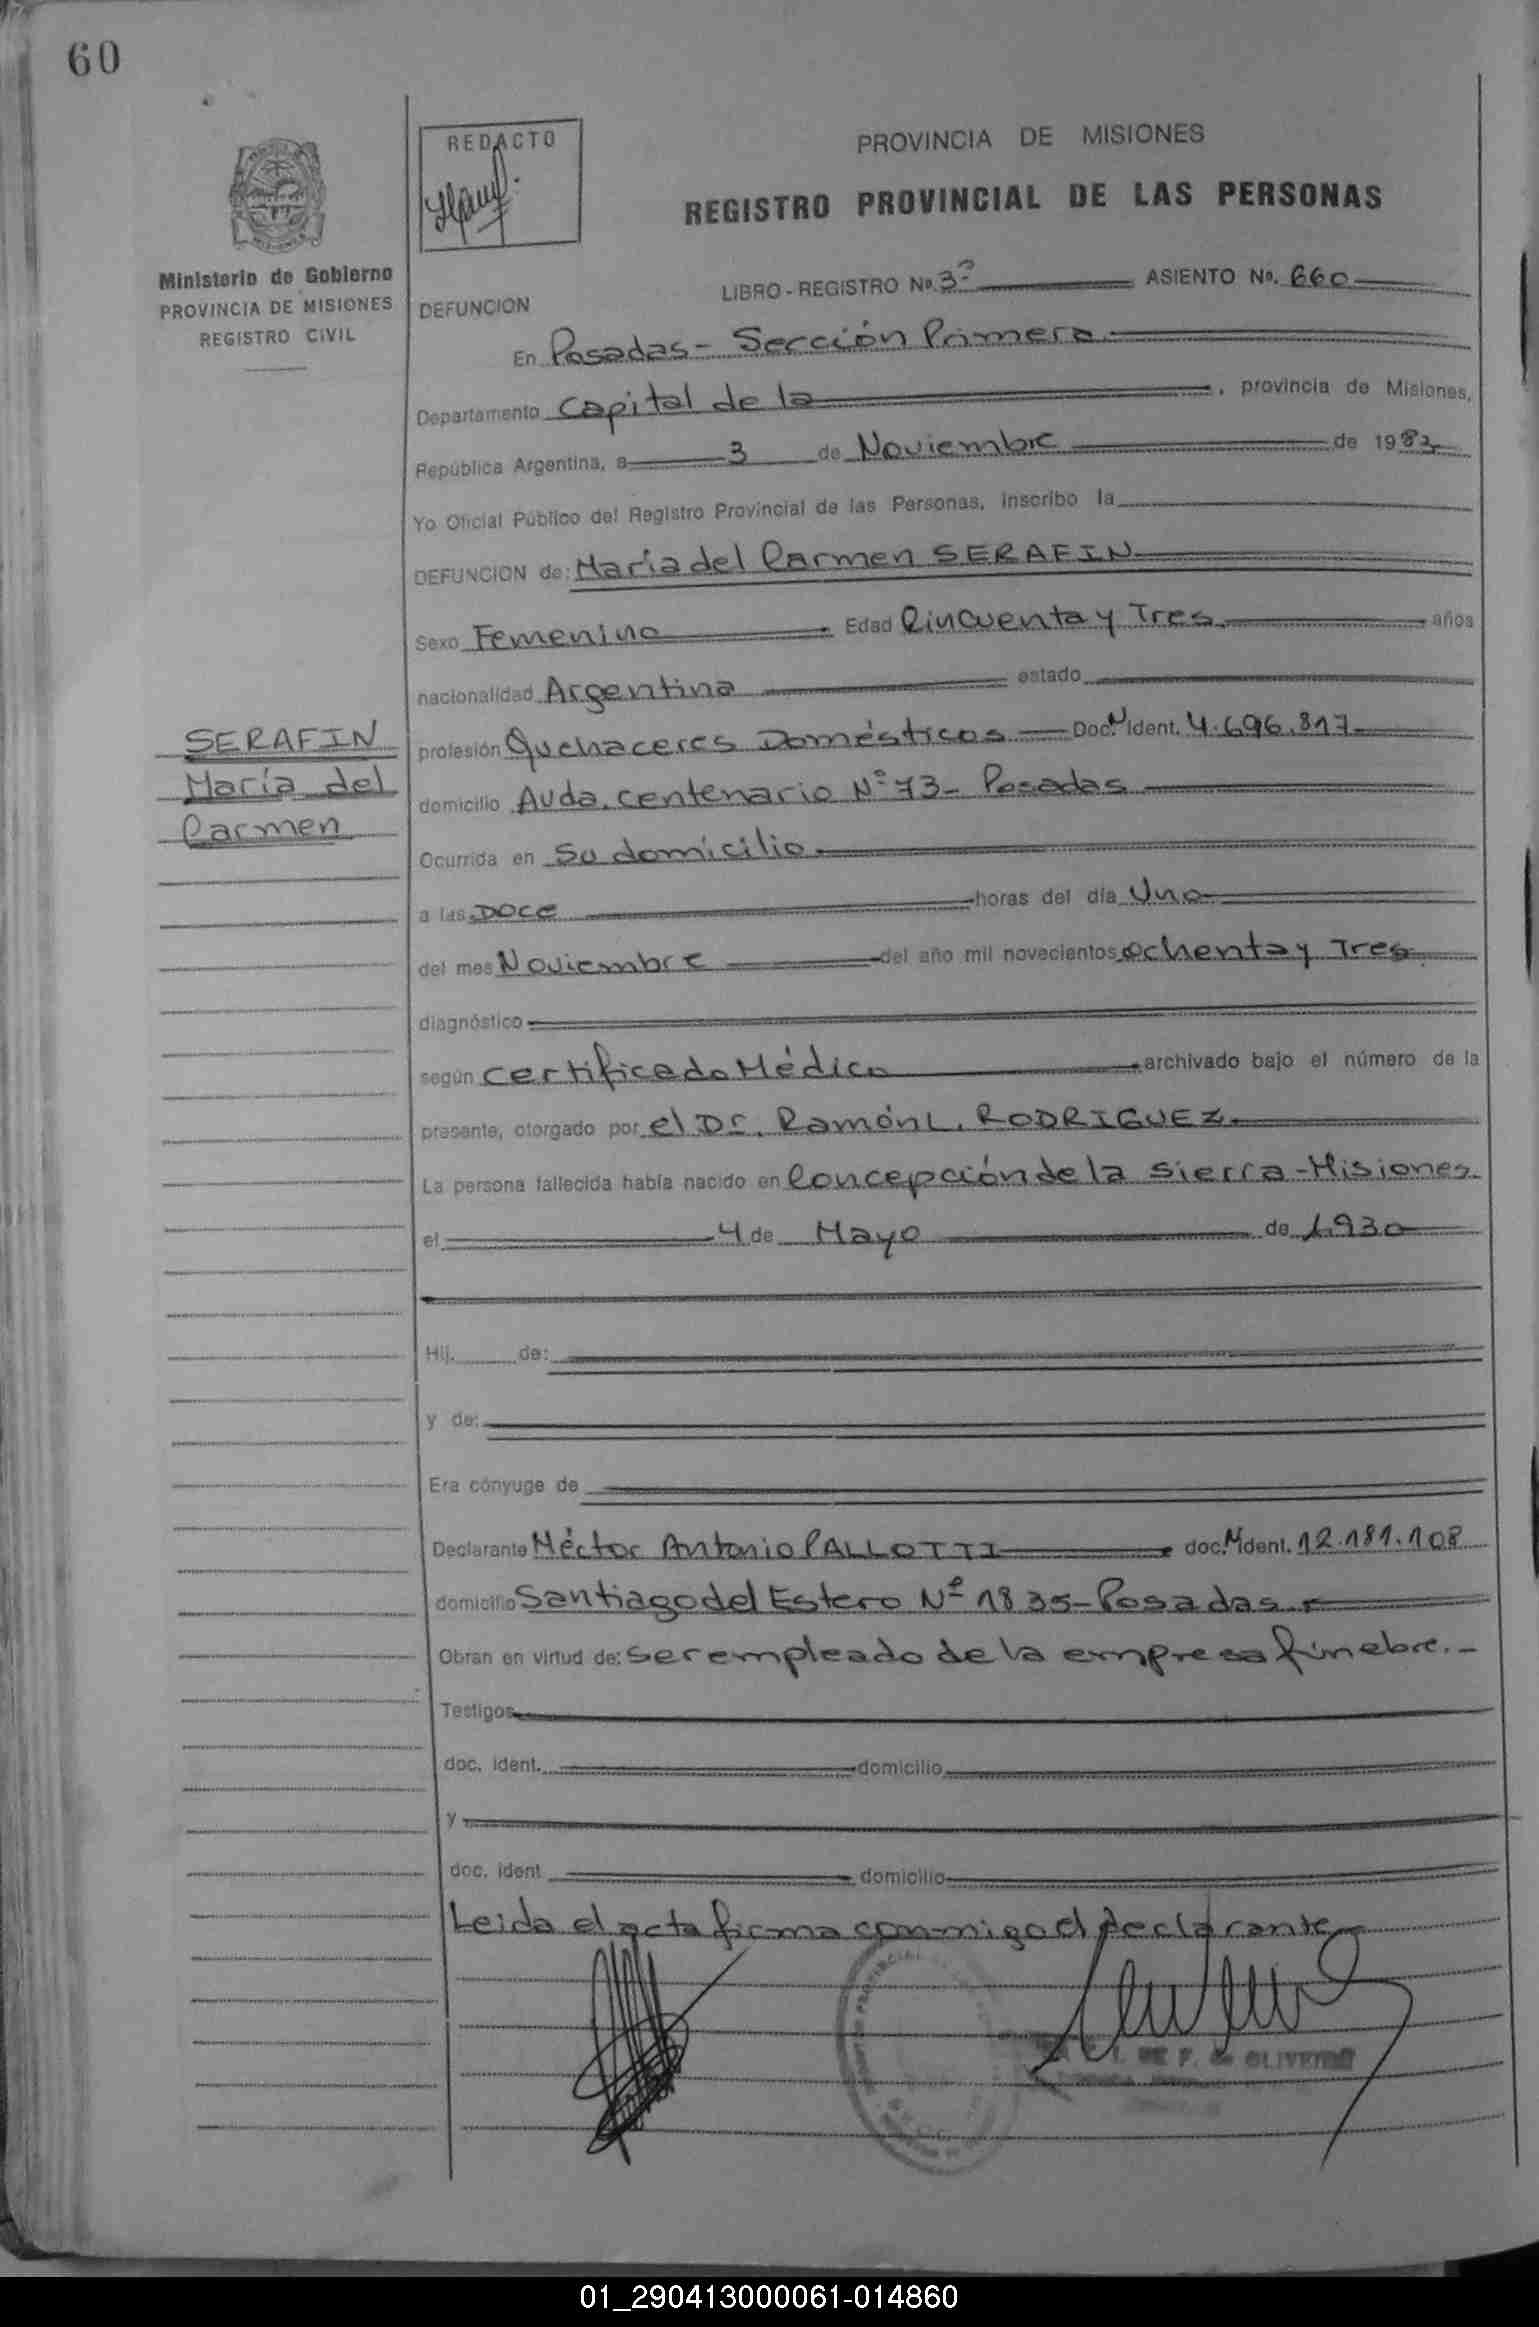 60
REDACTO
PROVINCIA DE MISIONES
REGISTRO PROVINCIAL DE LAS PERSONAS
Ministerio de Gobierno
PROVINCIA DE MISIONES
REGISTRO CIVIL
LIBRO-REGISTRO Nº 3º ASIENTO Nº. 660
DEFUNCION
En Posadas - Sección Primera
Departamento Capital de la, provincia de Misiones,
República Argentina, a 3 de Noviembre de 1983
Yo Oficial Público del Registro Provincial de las Personas, inscribo la
DEFUNCION de: María del Carmen SERAFIN
Sexo Femenino Edad Cincuenta y Tres años
nacionalidad Argentina estado
SERAFIN
María del
Carmen
profesión Quehaceres Domésticos Doc. N Ident. 4.696.817
domicilio Avda. Centenario Nº 73 - Posadas
Ocurrida en Su domicilio
a las Doce horas del día Uno
del mes Noviembre del año mil novecientos ochenta y Tres
diagnóstico
según Certificado Médico archivado bajo el número de la
presente, otorgado por el Dr. Ramón L. RODRIGUEZ
La persona fallecida había nacido en Concepción de la Sierra - Misiones
el 4 de Mayo de 1.930
Hij. de:
y de:
Era cónyuge de
Declarante Héctor Antonio PALLOTTI doc. N Ident. 12.181.108
domicilio Santiago del Estero Nº 1835 - Posadas
Obran en virtud de: Ser empleado de la empresa fúnebre.-
Testigos
doc. ident. domicilio
y
doc. ident domicilio
Leida el acta firma conmigo el declarante
DE F. de OLIVEIRA
01_290413000061-014860